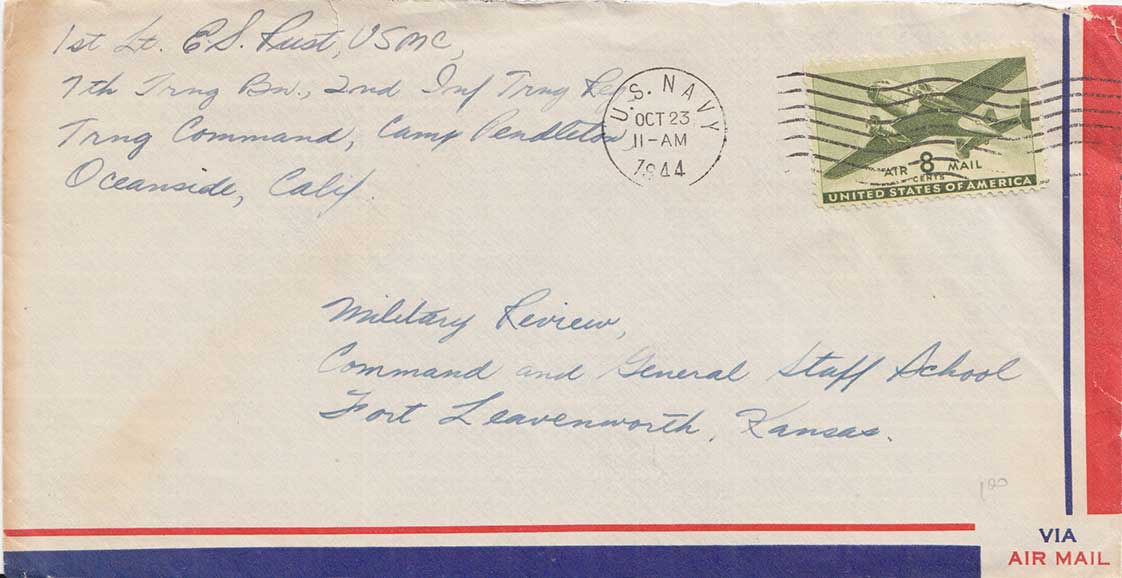 1st Lt. E.S. Rust, USMC,
7th Trng Bn., 2nd Inf Trng Reg
Trng Command, Camp Pendleton
Oceanside, Calif.
U.S. NAVY
OCT 23
11-AM
1944
AIR 8 MAIL
CENTS
UNITED STATES OF AMERICA
Military Review,
Command and General Staff School
Fort Leavenworth, Kansas.
VIA
AIR MAIL